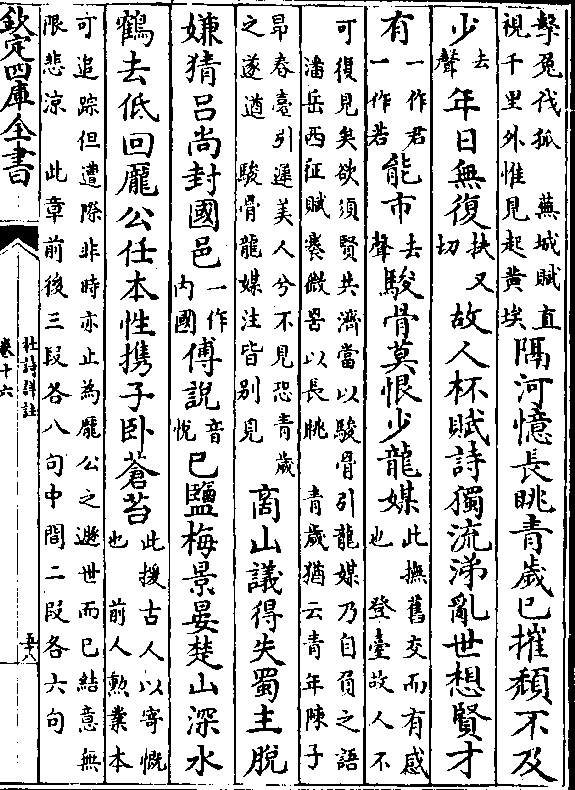 擊兔伐狐　蕪城賦直
視千里外惟見起黄埃
隔河憶長眺青歲已摧頽不及
少去聲年日無復扶又切故人杯賦詩獨流涕亂世想賢才
有一作君一作若能市去聲駿骨莫恨少龍媒此撫舊交而有感
也　登臺故人不
可復見矣欲須賢共濟當以駿骨引龍媒乃自負之語
潘岳西征賦褰微罟以長眺　青歲猶云青年陳子
昻春臺引遲美人兮不見恐青歲
之遂遒　駿骨龍媒注皆别見
商山議得失蜀主脫
嫌猜吕尚封國邑一作内國傅說音悅已鹽梅景晏楚山深水
鶴去低回龐公任本性携子卧蒼苔此援古人以寄慨
也　前人勲業本
可追踪但遭際非時亦止為龐公之遯世而已結意無
限悲涼　此章前後三段各八句中間二段各六句
欽定四庫全書
杜詩詳註
卷十六